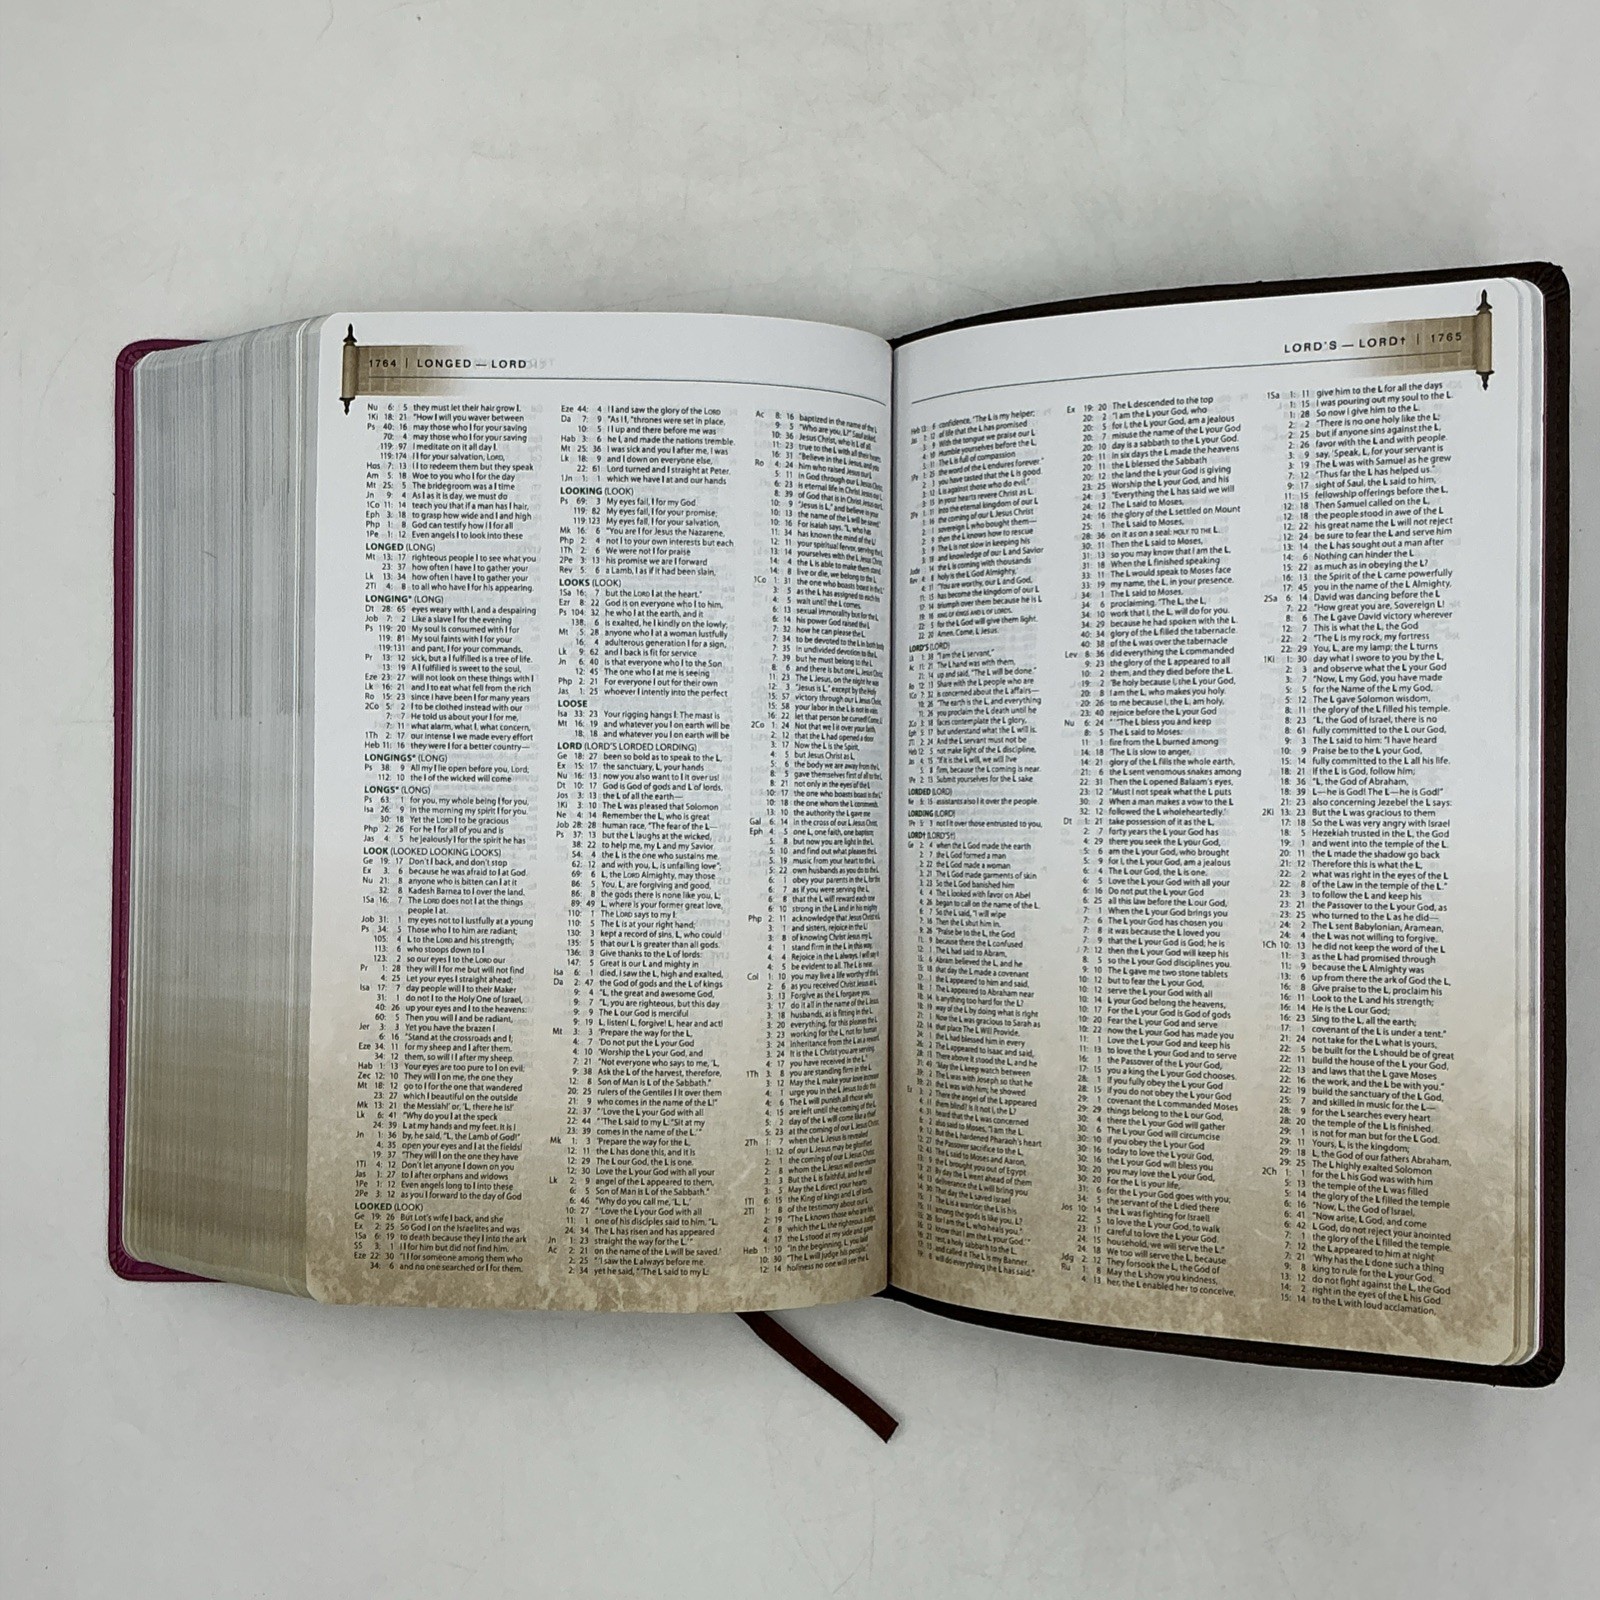 1764 | LONGED — LORD
Nu 6: 5 they must let their hair grow l.
1Ki 18: 21 "How l will you waver between
Ps 40: 16 may those who l for your saving
70: 4 may those who l for your saving
119: 97 l meditate on it all day l.
119: 174 I l for your salvation, LORD,
Hos 7: 13 I l to redeem them but they speak
Am 5: 18 Woe to you who l for the day
Mt 25: 5 The bridegroom was a l time
Jn 9: 4 As l as it is day, we must do
1Co 11: 14 teach you that if a man has l hair,
Eph 3: 18 to grasp how wide and l and high
Php 1: 8 God can testify how I l for all
1Pe 1: 12 Even angels l to look into these
LONGED (LONG)
Mt 13: 17 righteous people l to see what you
23: 37 how often I have l to gather your
Lk 13: 34 how often I have l to gather your
2Ti 4: 8 to all who have l for his appearing.
LONGING* (LONG)
Dt 28: 65 eyes weary with l, and a despairing
Job 7: 2 Like a slave l for the evening
Ps 119: 20 My soul is consumed with l for
119: 81 My soul faints with l for your
119: 131 and pant, l for your commands.
Pr 13: 12 sick, but a l fulfilled is a tree of life.
13: 19 A l fulfilled is sweet to the soul,
Eze 23: 27 will not look on these things with l
Lk 16: 21 and l to eat what fell from the rich
2Co 5: 2 l to be clothed instead with our
7: 7 He told us about your l for me,
7: 11 what alarm, what l, what concern,
1Th 2: 17 our intense l we made every effort
Heb 11: 16 they were l for a better country—
LONGINGS* (LONG)
Ps 38: 9 All my l lie open before you, Lord;
112: 10 the l of the wicked will come
LONGS* (LONG)
Ps 63: 1 for you, my whole being l for you,
Isa 26: 9 in the morning my spirit l for you.
30: 18 Yet the LORD l to be gracious
Php 2: 26 For he l for all of you and is
Jas 4: 5 he jealously l for the spirit he has
LOOK (LOOKED LOOKING LOOKS)
Ge 19: 17 Don't l back, and don't stop
Ex 3: 6 because he was afraid to l at God.
Nu 21: 8 anyone who is bitten can l at it
32: 8 Kadesh Barnea to l over the land.
1Sa 16: 7 The LORD does not l at the things
people l at.
Job 31: 1 my eyes not to l lustfully at a young
Ps 34: 5 Those who l to him are radiant;
105: 4 L to the LORD and his strength;
113: 6 who stoops down to l
123: 2 so our eyes l to the LORD our
Pr 1: 28 they will l for me but will not find
4: 25 Let your eyes l straight ahead;
Isa 17: 7 day people will l to their Maker
31: 1 do not l to the Holy One of Israel,
40: 26 up your eyes and l to the heavens:
60: 5 Then you will l and be radiant,
Jer 3: 3 Yet you have the brazen l
6: 16 "Stand at the crossroads and l;
Eze 34: 11 for my sheep and l after them.
34: 12 them, so will I l after my sheep.
Hab 1: 13 Your eyes are too pure to l on evil;
Zec 12: 10 They will l on me, the one they
Mt 18: 12 go to l for the one that wandered
23: 27 which l beautiful on the outside
Mk 13: 21 the Messiah!' or, 'L, there he is!'
Lk 6: 41 "Why do you l at the speck
24: 39 L at my hands and my feet. It is I
Jn 1: 36 by, he said, "L, the Lamb of God!"
4: 35 open your eyes and l at the fields!
19: 37 "They will l on the one they have
1Ti 4: 12 Don't let anyone l down on you
Jas 1: 27 to l after orphans and widows
1Pe 1: 12 Even angels long to l into these
2Pe 3: 12 as you l forward to the day of God
LOOKED (LOOK)
Ge 19: 26 But Lot's wife l back, and she
Ex 2: 25 So God l on the Israelites and was
1Sa 6: 19 to death because they l into the ark
SS 3: 1 I l for him but did not find him.
Eze 22: 30 "I l for someone among them who
34: 6 and no one searched or l for them.
Eze 44: 4 I l and saw the glory of the LORD
Da 7: 9 "As I l, "thrones were set in place,
10: 5 I l up and there before me was
Hab 3: 6 he l, and made the nations tremble.
Mt 25: 36 I was sick and you l after me, I was
Lk 18: 9 and l down on everyone else,
22: 61 Lord turned and l straight at Peter.
1Jn 1: 1 which we have l at and our hands
LOOKING (LOOK)
Ps 69: 3 My eyes fail, l for my God
119: 82 My eyes fail, l for your promise;
119: 123 My eyes fail, l for your salvation,
Mk 16: 6 "You are l for Jesus the Nazarene,
Php 2: 4 not l to your own interests but each
1Th 2: 6 We were not l for praise
2Pe 3: 13 his promise we are l forward
Rev 5: 6 a Lamb, l as if it had been slain,
LOOKS (LOOK)
1Sa 16: 7 but the LORD l at the heart."
Ezr 8: 22 God is on everyone who l to him,
Ps 104: 32 he who l at the earth, and it
138: 6 is exalted, he l kindly on the lowly;
Mt 5: 28 anyone who l at a woman lustfully
16: 4 adulterous generation l for a sign,
Lk 9: 62 and l back is fit for service
Jn 6: 40 is that everyone who l to the Son
12: 45 The one who l at me is seeing
Php 2: 21 For everyone l out for their own
Jas 1: 25 whoever l intently into the perfect
LOOSE
Isa 33: 23 Your rigging hangs l: The mast is
Mt 16: 19 and whatever you l on earth will be
18: 18 and whatever you l on earth will be
LORD (LORD'S LORDED LORDING)
Ge 18: 27 been so bold as to speak to the L,
Ex 15: 17 the sanctuary, L, your hands
Nu 16: 13 now you also want to l it over us!
Dt 10: 17 God is God of gods and L of lords,
Jos 3: 13 the L of all the earth—
1Ki 3: 10 The L was pleased that Solomon
Ne 4: 14 Remember the L, who is great
Job 28: 28 human race, "The fear of the L—
Ps 37: 13 but the L laughs at the wicked,
38: 22 to help me, my L and my Savior
54: 4 the L is the one who sustains me.
62: 12 and with you, L, is unfailing love";
69: 6 L, the LORD Almighty, may those
86: 5 You, L, are forgiving and good,
86: 8 the gods there is none like you, L;
89: 49 L, where is your former great love,
110: 1 The LORD says to my l:
110: 5 The L is at your right hand;
130: 3 kept a record of sins, L, who could
135: 5 that our L is greater than all gods.
136: 3 Give thanks to the L of lords:
147: 5 Great is our L and mighty in
Isa 6: 1 died, I saw the L, high and exalted,
Da 2: 47 the God of gods and the L of kings
9: 4 "L, the great and awesome God,
9: 7 "L, you are righteous, but this day
9: 9 The L our God is merciful
9: 19 L, listen! L, forgive! L, hear and act!
Mt 3: 3 'Prepare the way for the L,
4: 7 'Do not put the L your God
4: 10 'Worship the L your God, and
7: 21 "Not everyone who says to me, 'L,
9: 38 Ask the L of the harvest, therefore,
12: 8 Son of Man is L of the Sabbath."
20: 25 rulers of the Gentiles l it over them
21: 9 who comes in the name of the L!"
22: 37 "'Love the L your God with all
22: 44 "'The L said to my L: "Sit at my
23: 39 comes in the name of the L.'"
Mk 1: 3 'Prepare the way for the L,
12: 11 the L has done this, and it is
12: 29 The L our God, the L is one.
12: 30 Love the L your God with all your
Lk 2: 9 angel of the L appeared to them,
6: 5 Son of Man is L of the Sabbath."
6: 46 "Why do you call me, 'L, L,'
10: 27 "'Love the L your God with all
11: 1 one of his disciples said to him, "L,
24: 34 The L has risen and has appeared
Jn 1: 23 straight the way for the L.'"
Ac 2: 21 on the name of the L will be saved.'
2: 25 "'I saw the L always before me.
2: 34 yet he said, "'The L said to my L:
Ac 8: 16 baptized in the name of the L
9: 5 "Who are you, L?" Saul asked.
10: 36 Jesus Christ, who is L of all.
11: 23 true to the L with all their hearts.
16: 31 "Believe in the L Jesus, and you
Ro 4: 24 him who raised Jesus our L
5: 11 in God through our L Jesus Christ,
6: 23 is eternal life in Christ Jesus our L.
8: 39 of God that is in Christ Jesus our L.
10: 9 "Jesus is L," and believe in your
10: 13 the name of the L will be saved."
10: 16 For Isaiah says, "L, who has
11: 34 has known the mind of the L?
12: 11 your spiritual fervor, serving the L.
13: 14 yourselves with the L Jesus Christ,
14: 4 the L is able to make them stand.
14: 8 live or die, we belong to the L.
1Co 1: 31 the one who boasts boast in the L."
3: 5 as the L has assigned to each his
4: 5 wait until the L comes.
6: 13 sexual immorality but for the L,
6: 14 his power God raised the L
7: 32 how he can please the L.
7: 34 to be devoted to the L in both body
7: 35 in undivided devotion to the L.
7: 39 but he must belong to the L.
8: 6 and there is but one L, Jesus Christ,
11: 23 The L Jesus, on the night he was
12: 3 "Jesus is L," except by the Holy
15: 57 victory through our L Jesus Christ.
15: 58 your labor in the L is not in vain.
16: 22 let that person be cursed! Come, L
2Co 1: 24 Not that we l it over your faith,
2: 12 that the L had opened a door
3: 17 Now the L is the Spirit,
4: 5 but Jesus Christ as L,
5: 6 the body we are away from the L.
8: 5 gave themselves first of all to the L,
8: 21 not only in the eyes of the L
10: 17 the one who boasts boast in the L."
10: 18 the one whom the L commends.
13: 10 the authority the L gave me
Gal 6: 14 in the cross of our L Jesus Christ,
Eph 4: 5 one L, one faith, one baptism;
5: 8 but now you are light in the L.
5: 10 and find out what pleases the L.
5: 19 music from your heart to the L,
5: 22 own husbands as you do to the L.
6: 1 obey your parents in the L, for this
6: 7 as if you were serving the L,
6: 8 that the L will reward each one
6: 10 strong in the L and in his mighty
Php 2: 11 acknowledge that Jesus Christ is L,
3: 1 and sisters, rejoice in the L!
3: 8 of knowing Christ Jesus my L,
4: 1 stand firm in the L in this way,
4: 4 Rejoice in the L always. I will say it
4: 5 be evident to all. The L is near.
Col 1: 10 you may live a life worthy of the L
2: 6 as you received Christ Jesus as L,
3: 13 Forgive as the L forgave you.
3: 17 do it all in the name of the L Jesus,
3: 18 husbands, as is fitting in the L.
3: 20 everything, for this pleases the L.
3: 23 working for the L, not for human
3: 24 inheritance from the L as a reward.
3: 24 It is the L Christ you are serving.
4: 17 you have received in the L."
1Th 3: 8 you are standing firm in the L.
3: 12 May the L make your love increase
4: 1 urge you in the L Jesus to do this
4: 6 The L will punish all those who
4: 15 are left until the coming of the L,
5: 2 day of the L will come like a thief
5: 23 at the coming of our L Jesus Christ.
2Th 1: 7 when the L Jesus is revealed
1: 12 of our L Jesus may be glorified
2: 1 the coming of our L Jesus Christ
2: 8 whom the L Jesus will overthrow
3: 3 But the L is faithful, and he will
3: 5 May the L direct your hearts
1Ti 6: 15 the King of kings and L of lords,
2Ti 1: 8 of the testimony about our L
2: 19 "The L knows those who are his,"
4: 8 which the L, the righteous Judge,
4: 17 the L stood at my side and gave
Heb 1: 10 "In the beginning, L, you laid
10: 30 "The L will judge his people."
12: 14 holiness no one will see the L.
LORD'S — LORD† | 1765
Heb 13: 6 confidence, "The L is my helper;
Jas 1: 12 of life that the L has promised
3: 9 With the tongue we praise our L
4: 10 Humble yourselves before the L,
5: 11 The L is full of compassion
1Pe 1: 25 the word of the L endures forever."
2: 3 you have tasted that the L is good.
3: 12 L is against those who do evil."
3: 15 in your hearts revere Christ as L.
2Pe 1: 11 into the eternal kingdom of our L
1: 16 the coming of our L Jesus Christ
2: 1 sovereign L who bought them—
2: 9 then the L knows how to rescue
3: 9 The L is not slow in keeping his
3: 18 and knowledge of our L and Savior
Jude 14 the L is coming with thousands
Rev 4: 8 holy is the L God Almighty,'
4: 11 "You are worthy, our L and God,
11: 15 has become the kingdom of our L
17: 14 triumph over them because he is L
19: 16 KING OF KINGS AND L OF LORDS.
22: 5 for the L God will give them light.
22: 20 Amen. Come, L Jesus.
LORD'S (LORD)
Lk 1: 38 "I am the L servant,"
Ac 11: 21 The L hand was with them,
21: 14 up and said, "The L will be done."
Ro 12: 13 Share with the L people who are
1Co 7: 32 is concerned about the L affairs—
10: 26 "The earth is the L, and everything
11: 26 you proclaim the L death until he
2Co 3: 18 faces contemplate the L glory,
Eph 5: 17 but understand what the L will is.
2Ti 2: 24 And the L servant must not be
Heb 12: 5 not make light of the L discipline,
Jas 4: 15 "If it is the L will, we will live
5: 8 firm, because the L coming is near.
1Pe 2: 13 Submit yourselves for the L sake
LORDED (LORD)
Ne 5: 15 assistants also l it over the people.
LORDING (LORD)
1Pe 5: 3 not l it over those entrusted to you,
LORD† (LORD'S†)
Ge 2: 4 when the L God made the earth
2: 7 the L God formed a man
2: 22 the L God made a woman
3: 21 The L God made garments of skin
3: 23 So the L God banished him
4: 4 The L looked with favor on Abel
4: 26 began to call on the name of the L.
6: 7 So the L said, "I will wipe
7: 16 Then the L shut him in.
9: 26 "Praise be to the L, the God
11: 9 because there the L confused
12: 1 The L had said to Abram,
15: 6 Abram believed the L, and he
15: 18 that day the L made a covenant
17: 1 the L appeared to him and said,
18: 1 The L appeared to Abraham near
18: 14 Is anything too hard for the L?
18: 19 way of the L by doing what is right
21: 1 Now the L was gracious to Sarah as
22: 14 that place The L Will Provide.
24: 1 the L had blessed him in every
26: 2 The L appeared to Isaac and said,
28: 13 There above it stood the L, and he
31: 49 "May the L keep watch between
39: 2 The L was with Joseph so that he
39: 21 the L was with him; he showed
Ex 3: 2 There the angel of the L appeared
4: 11 them blind? Is it not I, the L?
4: 31 heard that the L was concerned
6: 2 also said to Moses, "I am the L.
9: 12 But the L hardened Pharaoh's heart
12: 27 the Passover sacrifice to the L,
12: 43 The L said to Moses and Aaron,
13: 9 the L brought you out of Egypt
13: 21 By day the L went ahead of them
14: 13 deliverance the L will bring you
14: 30 That day the L saved Israel
15: 3 The L is a warrior; the L is his
15: 11 among the gods is like you, L?
15: 26 for I am the L, who heals you."
16: 12 know that I am the L your God.'"
16: 23 rest, a holy sabbath to the L.
17: 15 and called it The L is my Banner.
19: 8 will do everything the L has said."
Ex 19: 20 The L descended to the top
20: 2 "I am the L your God, who
20: 5 for I, the L your God, am a jealous
20: 7 misuse the name of the L your God
20: 10 day is a sabbath to the L your God.
20: 11 in six days the L made the heavens
20: 11 the L blessed the Sabbath
20: 12 the land the L your God is giving
23: 25 Worship the L your God, and his
24: 3 "Everything the L has said we will
24: 12 The L said to Moses,
24: 16 the glory of the L settled on Mount
25: 1 The L said to Moses,
28: 36 on it as on a seal: HOLY TO THE L.
30: 11 Then the L said to Moses,
31: 13 so you may know that I am the L,
31: 18 When the L finished speaking
33: 11 The L would speak to Moses face
33: 19 my name, the L, in your presence.
34: 1 The L said to Moses,
34: 6 proclaiming, "The L, the L,
34: 10 work that I, the L, will do for you.
34: 29 because he had spoken with the L.
40: 34 glory of the L filled the tabernacle.
40: 38 of the L was over the tabernacle
Lev 8: 36 did everything the L commanded
9: 23 the glory of the L appeared to all
10: 2 them, and they died before the L.
19: 2 'Be holy because I, the L your God,
20: 8 I am the L, who makes you holy.
20: 26 to me because I, the L, am holy,
23: 40 rejoice before the L your God
Nu 6: 24 "'"The L bless you and keep
8: 5 The L said to Moses:
11: 1 fire from the L burned among
14: 18 'The L is slow to anger,
14: 21 glory of the L fills the whole earth,
21: 6 the L sent venomous snakes among
22: 31 Then the L opened Balaam's eyes,
23: 12 "Must I not speak what the L puts
30: 2 When a man makes a vow to the L
32: 12 followed the L wholeheartedly.'
Dt 1: 21 take possession of it as the L,
2: 7 forty years the L your God has
4: 29 there you seek the L your God,
5: 6 am the L your God, who brought
5: 9 for I, the L your God, am a jealous
6: 4 The L our God, the L is one.
6: 5 Love the L your God with all your
6: 16 Do not put the L your God
6: 25 all this law before the L our God,
7: 1 When the L your God brings you
7: 6 The L your God has chosen you
7: 8 it was because the L loved you
7: 9 that the L your God is God; he is
7: 12 then the L your God will keep his
8: 5 so the L your God disciplines you.
9: 10 The L gave me two stone tablets
10: 12 but to fear the L your God,
10: 12 serve the L your God with all
10: 14 L your God belong the heavens,
10: 17 For the L your God is God of gods
10: 20 Fear the L your God and serve
10: 22 now the L your God has made you
11: 1 Love the L your God and keep his
11: 13 to love the L your God and to serve
16: 1 the Passover of the L your God,
17: 15 you a king the L your God chooses.
28: 1 If you fully obey the L your God
28: 15 if you do not obey the L your God
29: 1 covenant the L commanded Moses
29: 29 things belong to the L our God,
30: 4 there the L your God will gather
30: 6 The L your God will circumcise
30: 10 if you obey the L your God
30: 16 today to love the L your God,
30: 16 the L your God will bless you
30: 20 you may love the L your God,
30: 20 For the L is your life,
31: 6 for the L your God goes with you;
34: 5 the servant of the L died there
Jos 10: 14 the L was fighting for Israel!
22: 5 to love the L your God, to walk
23: 11 careful to love the L your God.
24: 15 household, we will serve the L."
24: 18 We too will serve the L, because
Jdg 2: 12 They forsook the L, the God of
Ru 1: 8 May the L show you kindness,
4: 13 her, the L enabled her to conceive,
1Sa 1: 11 give him to the L for all the days
1: 15 I was pouring out my soul to the L.
1: 28 So now I give him to the L.
2: 2 "There is no one holy like the L;
2: 25 but if anyone sins against the L,
2: 26 favor with the L and with people.
3: 9 say, 'Speak, L, for your servant is
3: 19 The L was with Samuel as he grew
7: 12 "Thus far the L has helped us."
9: 17 sight of Saul, the L said to him,
11: 15 fellowship offerings before the L,
12: 18 Then Samuel called on the L,
12: 18 the people stood in awe of the L
12: 22 his great name the L will not reject
12: 24 be sure to fear the L and serve him
13: 14 the L has sought out a man after
14: 6 Nothing can hinder the L
15: 22 as much as in obeying the L?
16: 13 the Spirit of the L came powerfully
17: 45 you in the name of the L Almighty,
2Sa 6: 14 David was dancing before the L
7: 22 "How great you are, Sovereign L!
8: 6 The L gave David victory wherever
12: 7 This is what the L, the God
22: 2 "The L is my rock, my fortress
22: 29 You, L, are my lamp; the L turns
1Ki 1: 30 day what I swore to you by the L,
2: 3 and observe what the L your God
3: 7 "Now, L my God, you have made
5: 5 for the Name of the L my God,
5: 12 The L gave Solomon wisdom,
8: 11 the glory of the L filled his temple.
8: 23 "L, the God of Israel, there is no
8: 61 fully committed to the L our God,
9: 3 The L said to him: "I have heard
10: 9 Praise be to the L your God,
15: 14 fully committed to the L all his life.
18: 21 If the L is God, follow him;
18: 36 "L, the God of Abraham,
18: 39 L—he is God! The L—he is God!"
21: 23 also concerning Jezebel the L says:
2Ki 13: 23 But the L was gracious to them
17: 18 So the L was very angry with Israel
18: 5 Hezekiah trusted in the L, the God
19: 1 and went into the temple of the L.
20: 11 the L made the shadow go back
21: 12 Therefore this is what the L,
22: 2 what was right in the eyes of the L
22: 8 of the Law in the temple of the L."
23: 3 to follow the L and keep his
23: 21 the Passover to the L your God, as
23: 25 who turned to the L as he did—
24: 2 The L sent Babylonian, Aramean,
24: 4 the L was not willing to forgive.
1Ch 10: 13 he did not keep the word of the L
11: 3 as the L had promised through
11: 9 because the L Almighty was
13: 6 up from there the ark of God the L,
16: 8 Give praise to the L, proclaim his
16: 11 Look to the L and his strength;
16: 14 He is the L our God;
16: 23 Sing to the L, all the earth;
17: 1 covenant of the L is under a tent."
21: 24 not take for the L what is yours,
22: 5 be built for the L should be of great
22: 11 build the house of the L your God,
22: 13 and laws that the L gave Moses
22: 16 the work, and the L be with you."
22: 19 build the sanctuary of the L God,
25: 7 and skilled in music for the L—
28: 9 for the L searches every heart
28: 20 the temple of the L is finished.
29: 1 is not for man but for the L God.
29: 11 Yours, L, is the kingdom;
29: 18 L, the God of our fathers Abraham,
29: 25 The L highly exalted Solomon
2Ch 1: 1 for the L his God was with him
5: 13 the temple of the L was filled
5: 14 the glory of the L filled the temple
6: 16 "Now, L, the God of Israel,
6: 41 "Now arise, L God, and come
6: 42 L God, do not reject your anointed
7: 1 the glory of the L filled the temple.
7: 12 the L appeared to him at night
7: 21 'Why has the L done such a thing
9: 8 king to rule for the L your God.
13: 12 do not fight against the L, the God
14: 2 right in the eyes of the L his God.
15: 14 to the L with loud acclamation,